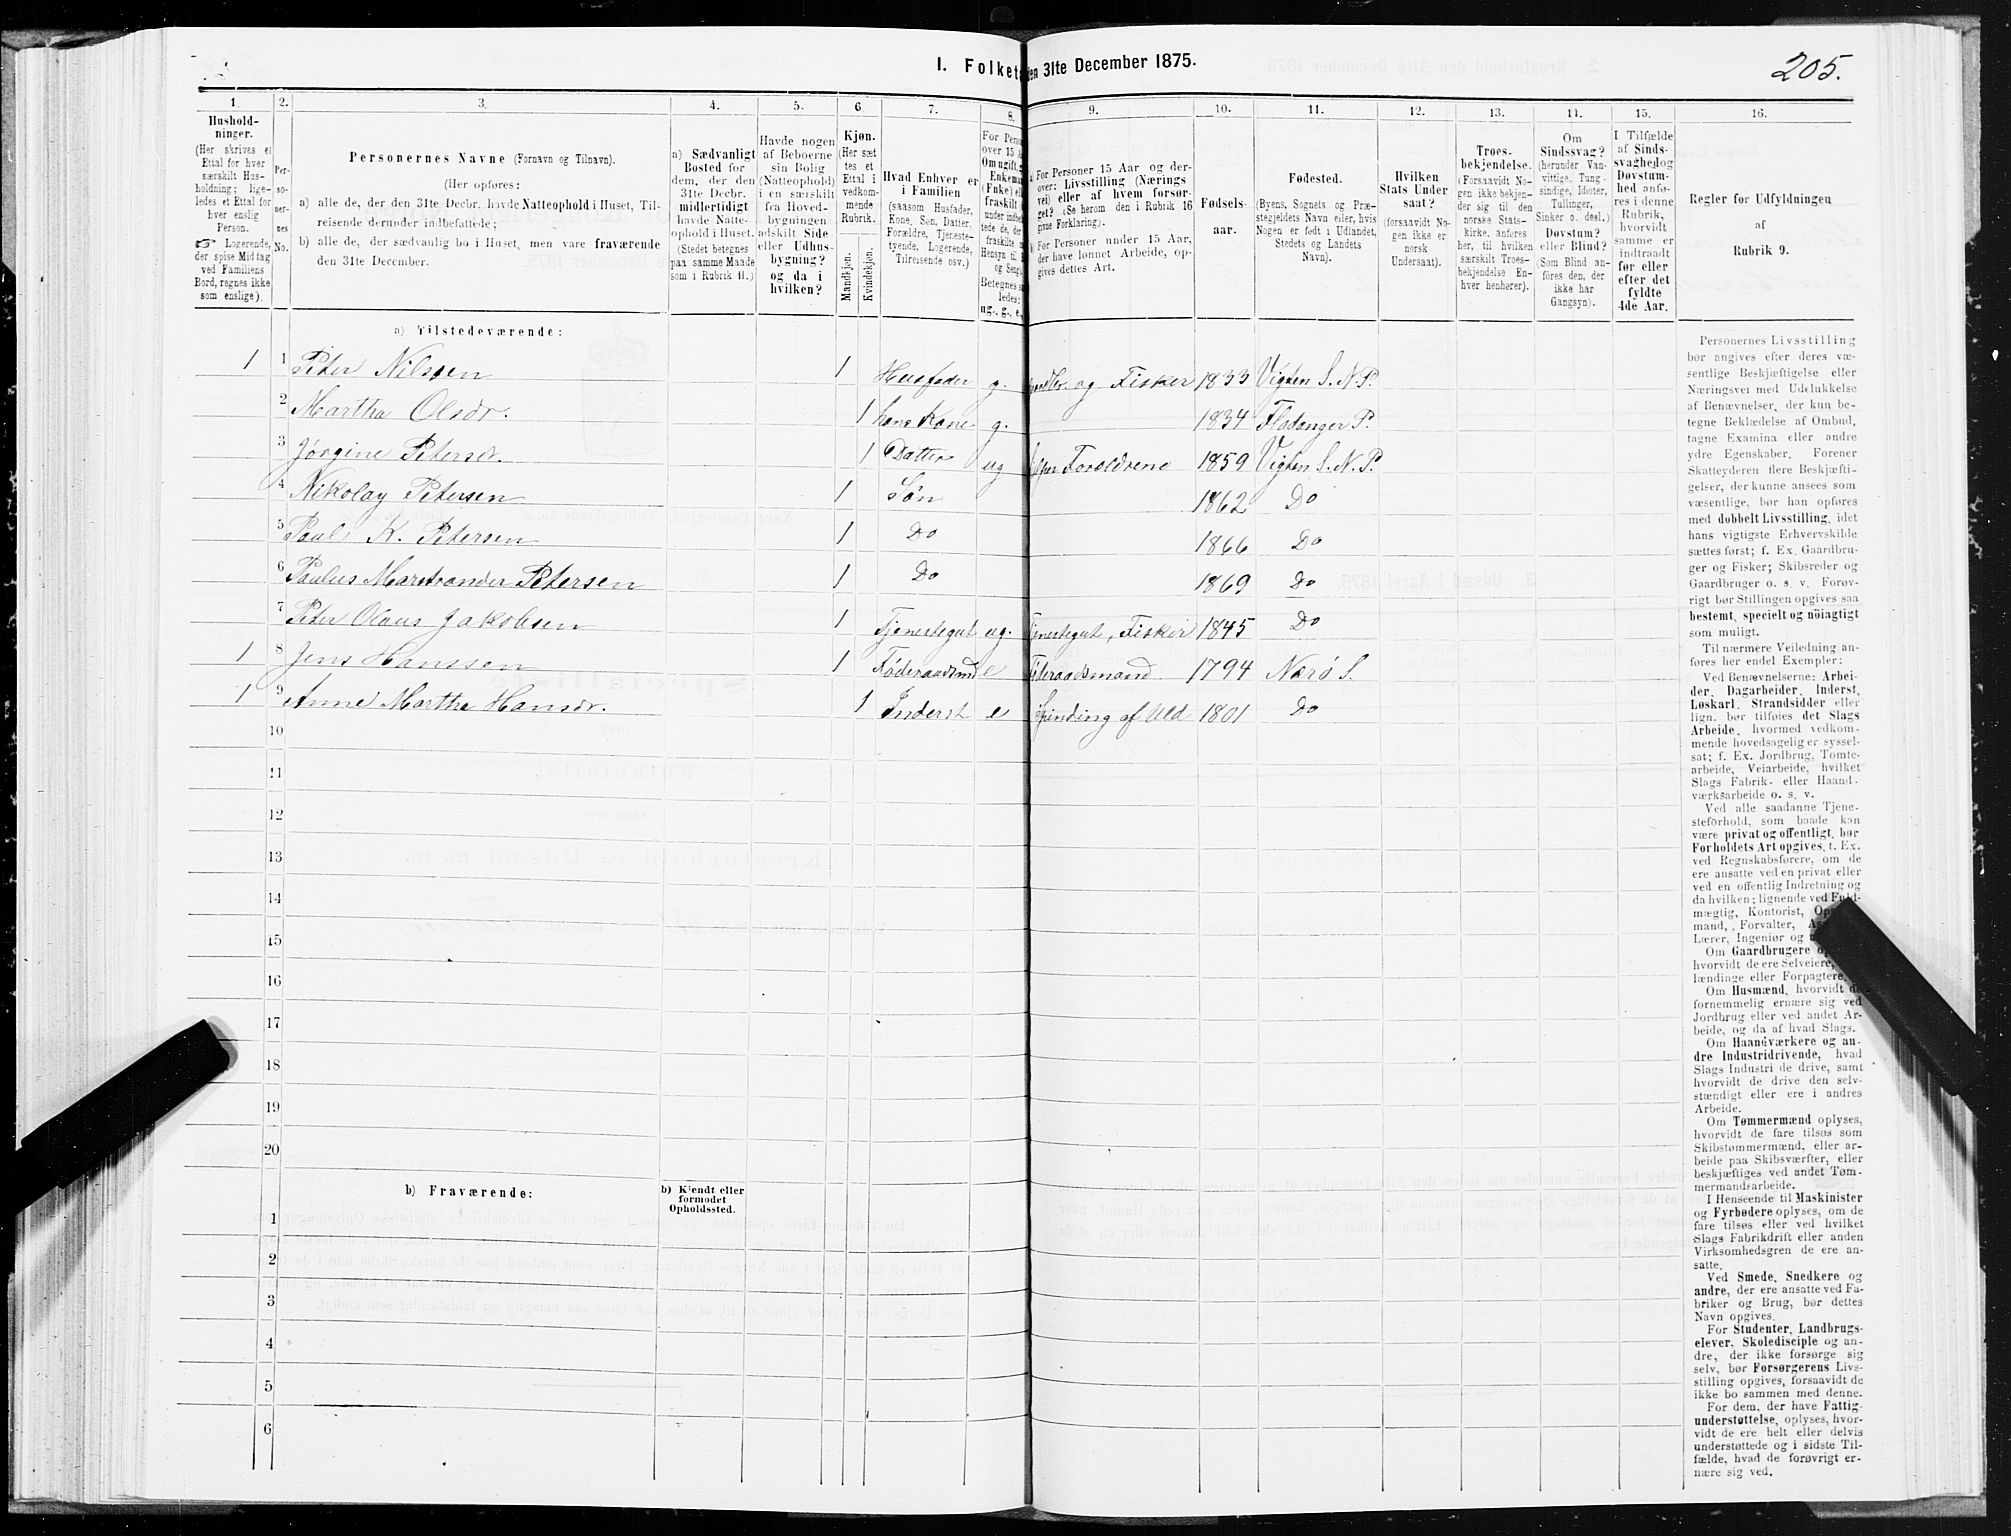 I. Folketa
den 31te December 1875.
205.
1. 2. 3. 4. 5. 6. 7. 8. 9. 10. 11. 12. 13. 14. 15. 16.
Hushold-
ninger.
(Her skrives et
Ettal for hver
særskilt Hus-
holdning; lige-
ledes et Ettal for
hver enslig
Person.
☞ Logerende,
der spise Middag
ved Familiens
Bord, regnes ikke
som enslige).
Per-
so-
ner-
nes
No.
Personernes Navne (Fornavn og Tilnavn).
(Her opføres:
a) alle de, der den 31te Decbr. havde Natteophold i Huset, Til-
reisende derunder indbefattede;
b) alle de, der sædvanlig bo i Huset, men vare fraværende
den 31te December.
a) Sædvanligt
Bosted for
dem, der den
31te Decbr.
midlertidigt
havde Natte-
ophold i Huset.
(Stedet betegnes
paa samme Maade
som i Rubrik 11.)
Havde nogen
af Beboerne
sin Bolig
(Natteophold)
i en særskilt
fra Hoved-
bygningen
adskilt Side
eller Udhus-
bygning?
og da i
hvilken?
Kjøn.
(Her sæt
tes et
Ettal i
vedkom-
mende
Rubrik.
Mandkjøn.
Kvindekjøn.
Hvad Enhver er
i Familien
(saasom Husfader,
Kone, Søn, Datter,
Forældre, Tjeneste-
tyende, Logerende,
Tilreisende osv.)
For Pers
over 15 A
Om ugift, g
Enkema
(Enke) el
fraskilt
under indbe
tede de, der
fraskilte m
Hensyn til B
og Seng
Betegnes sa
ledes:
ug., g., e.,
a) For Personer 15 Aar og der-
over: Livsstilling (Nærings
vei) eller af hvem forsør-
get? (Se herom den i Rubrik 16
givne Forklaring).
b) For Personer under 15 Aar,
der have lønnet Arbeide, op-
gives dettes Art.
Fødsels-
aar.
Fødested.
(Byens, Sognets og Præ-
stegjeldets Navn eller, hvis
Nogen er født i Udlandet,
Stedets og Landets
Navn).
Hvilken
Stats Under
saat?
(forsaavidt No-
gen ikke er
norsk
Undersaat).
Troes-
bekjendelse.
(Forsaavidt No-
gen ikke bekjen-
der sig til den
norske Stats-
kirke, anføres
her, til hvilken
særskilt Troes-
bekjendelse En-
hver henhører).
Om
Sindssvag?
(herunder Van-
vittige, Tung-
sindige, Idioter,
Tullinger,
Sinker o. desl.)
Døvstum?
eller Blind?
(Som Blind an-
føres den, der
ikke har
Gangsyn).
I Tilfælde
af Sinds-
svaghed og
Døvstum-
hed anfø-
res i denne
Rubrik,
hvorvidt
samme er
indtraadt
før eller
efter det
fyldte
4de Aar.
Regler for Udfyldningen
af
Rubrik 9.
a) Tilstedeværende:
1 1 Peter Nilssen 1 Husfader g. og Fisker 1833 Vigten S. N. P.
2 Martha Olsdr. 1 hans Kone g. 1834 Fladanger P.
3 Jørgine Petersdr. 1 Datter ug Forældrene 1859 Vigten S. N. P.
4 Nikolay Petersen 1 Søn 1862 Do
5 Paul K. Petersen 1 Do 1866 Do
6 Paulus Marstrander Petersen 1 Do 1869 Do
7 Peter Olaus Jakobsen 1 Tjenestegut ug. Tjenestegut, Fisker 1845 Do
1 8 Jens Hanssen 1 Føderaadsmd e Føderaadsmand 1794 Nærø S.
1 9 Anne Martha Hansdr. 1 Inderst e Spinding af Uld 1801 Do
10
11
12
13
14
15
16
17
18
19
20
b) Fraværende:
b) Kjendt eller
formodet
Opholdssted.
1
2
3
4
5
6
Personernes Livsstilling
bør angives efter deres væ-
sentlige Beskjæftigelse eller
Næringsvei med Udelukkelse
af Benævnelser, der kun be-
tegne Beklædelse af Ombud,
tagne Examina eller andre
ydre Egenskaber. Forener
Skatteyderen flere Beskjæfti-
gelser, der kunne ansees som
væsentlige, bør han opføres
med dobbelt Livsstilling, idet
hans vigtigste Erhvervskilde
sættes først; f. Ex. Gaardbru-
ger og Fisker; Skibsreder og
Gaardbruger o. s. v. Forøv-
rigt bør Stillingen opgives saa
bestemt, specielt og nöiagtigt
som muligt.
Til nærmere Veiledning an-
føres her endel Exempler:
Ved Benævnelserne: Arbei-
der, Dagarbeider, Inderst,
Løskarl, Strandsidder eller
lign. bør tilføies det Slags
Arbeide, hvormed vedkom-
mende hovedsagelig er syssel-
sat; f. Ex. Jordbrug, Tomte-
arbeide, Veiarbeide, hvilket
Slags Fabrik- eller Haand-
værksarbeide o. s. v.
Ved alle saadanne Tjene-
steforhold, som baade kan
være privat og offentligt, bør
Forholdets Art opgives, f. Ex.
ved Regnskabsførere, om de
ere ansatte ved en privat eller
ved en offentlig Indretning og
da hvilken; lignende ved Fuld-
mægtig, Kontorist,
mand, Forvalter,
Lærer, Ingeniør og
Om Gaardbrugere
hvorvidt de ere Selveiere,
lændinge eller Forpagtere.
Om Husmænd, hvorvidt de
fornemmelig ernære sig ved
Jordbrug eller ved andet Ar-
beide, og da af hvad Slags.
Om Haandværkere og an-
dre Industridrivende, hvad
Slags Industri de drive, samt
hvorvidt de drive den selv-
stændigt eller ere i andres
Arbeide.
Om Tømmermænd oplyses,
hvorvidt de fare tilsøs som
Skibstømmermænd, eller ar-
beide paa Skibsværfter, eller
beskjæftiges ved andet Tøm-
mermandsarbeide.
I Henseende til Maskinister
og Fyrbødere oplyses, om de
fare tilsøs eller ved hvilket
Slags Fabrikdrift eller anden
Virksomhedsgren de ere an-
satte.
Ved Smede, Snedkere og
andre, der ere ansatte ved Fa-
briker og Brug, bør dettes
Navn opgives.
For Studenter, Landbrugs-
elever, Skoledisciple og an-
dre, der ikke forsørge sig
selv, bør Forsørgerens Livs-
stilling opgives, forsaavidt de
ikke bo sammen med denne.
For dem, der have Fattig-
understøttelse, oplyses, hvor-
vidt de ere helt eller delvis
understøttede og i sidste Til-
fælde, hvad de forøvrigt er-
nære sig ved.